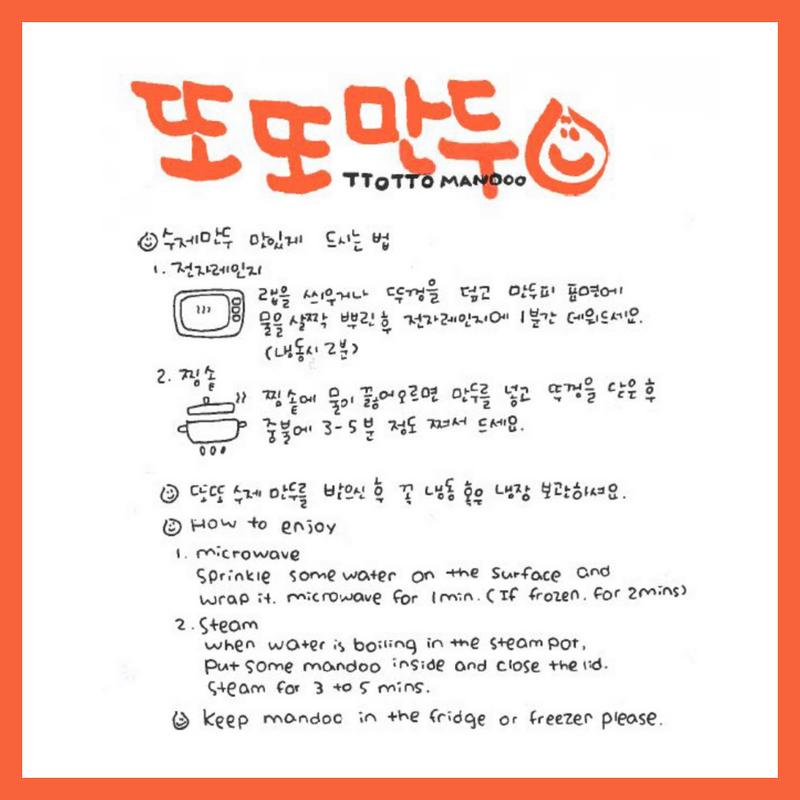 또또만두
TTOTTO MANDOO
수제만두 맛있게 드시는 법
1. 전자레인지
랩을 씌우거나 뚜껑을 덮고 만두피 표면에
물을 살짝 뿌린 후 전자레인지에 1분간 데워드세요.
(냉동시 2분)
2. 찜솥
찜솥에 물이 끓어오르면 만두를 넣고 뚜껑을 닫은 후
중불에 3-5분 정도 쪄서 드세요.
또또 수제 만두를 받으신 후 꼭 냉동 혹은 냉장 보관하셔요.
How to enjoy
1. microwave
Sprinkle some water on the surface and
wrap it. microwave for 1min. (If frozen. for 2mins)
2. Steam
when water is boiling in the steam pot,
put some mandoo inside and close the lid.
Steam for 3 to 5 mins.
keep mandoo in the fridge or freezer please.